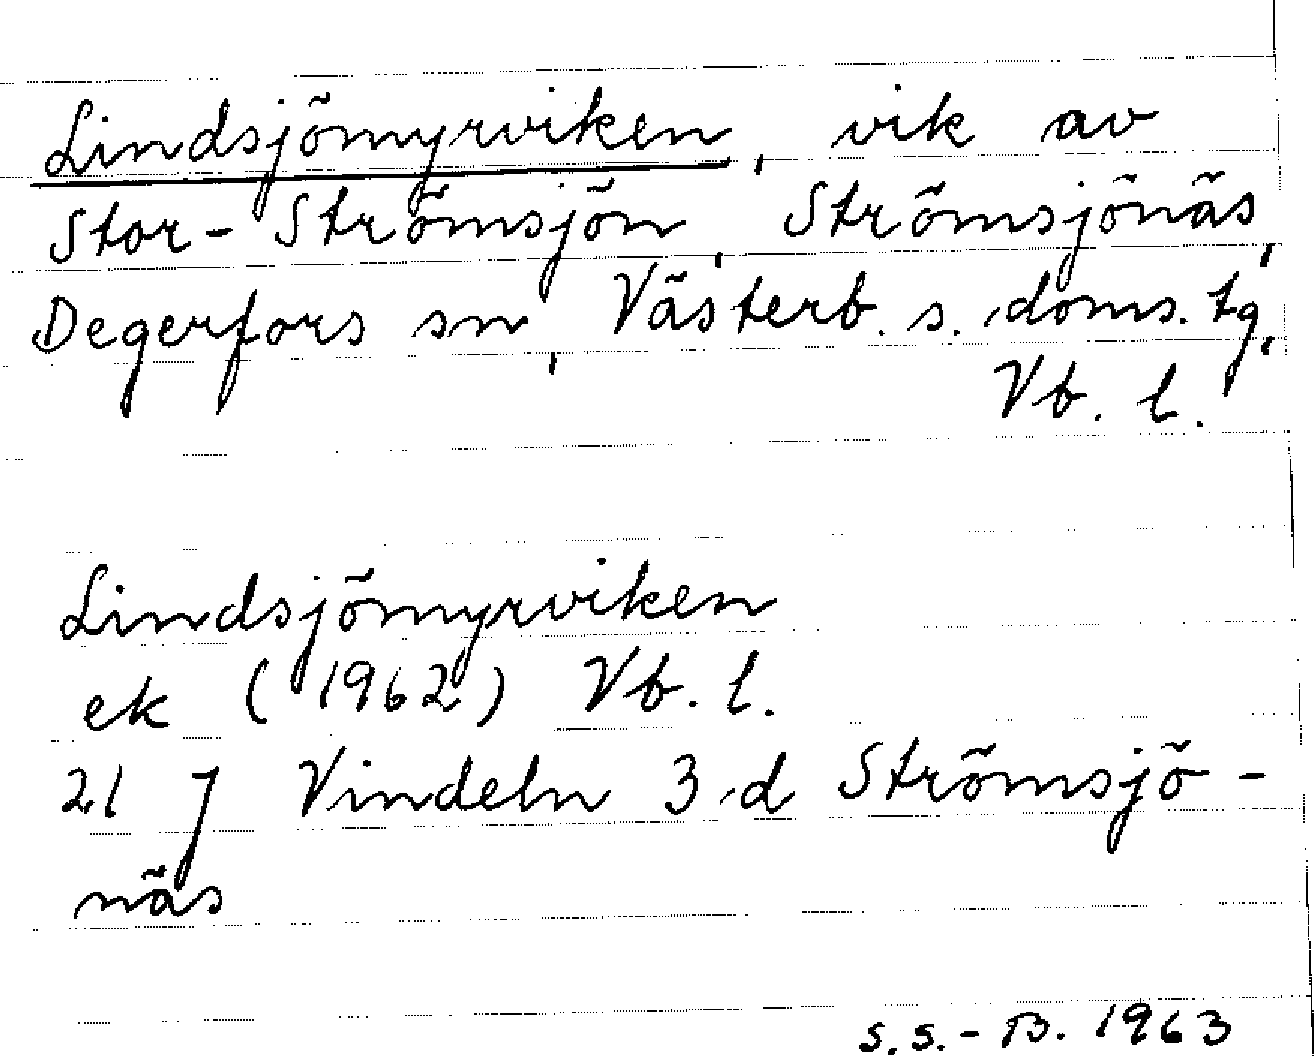 Lindsjömyrviken, vik av
Stor-Strömsjön, Strömsjönäs,
Degerfors sn, Västerb. s. doms. tg,
Vb. l.
Lindsjömyrviken
ek (1962) Vb. l.
21 J Vindeln 3 d Strömsjö-
näs
S. S. - B. 1963